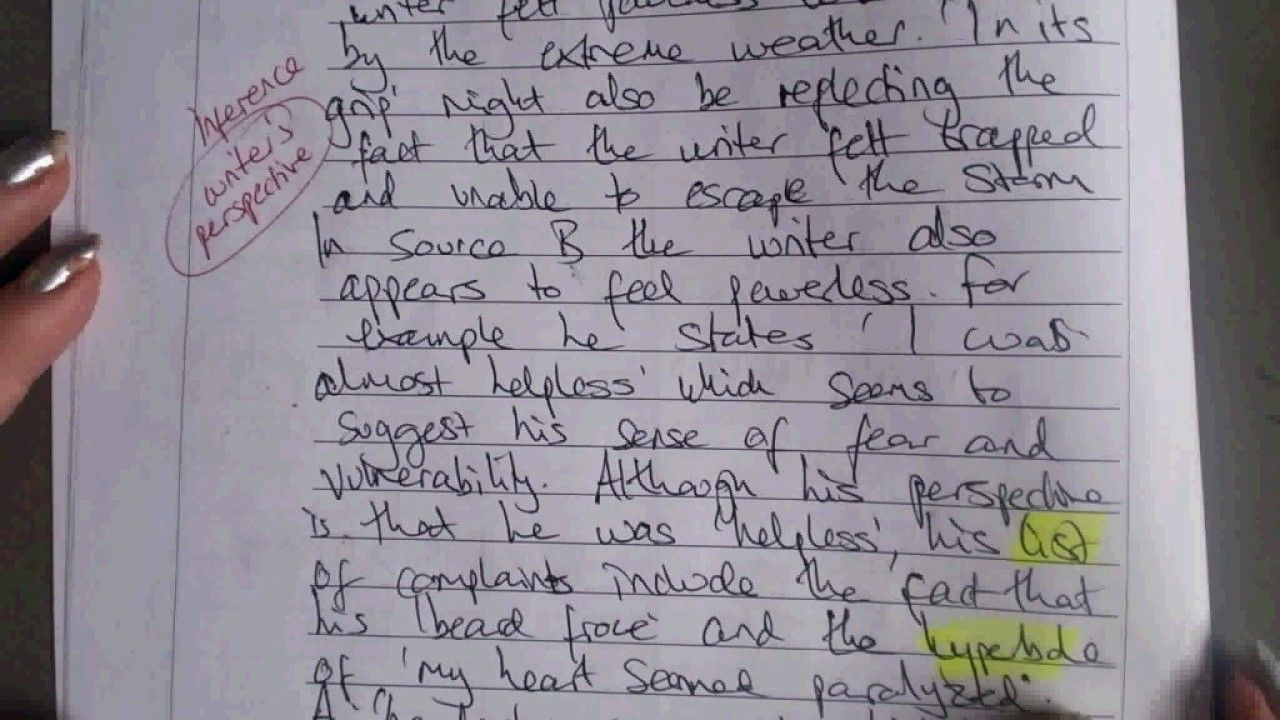 writer felt
by the extreme weather. 'In its
grip' might also be reflecting the
fact that the writer felt trapped
and unable to escape the storm
In Source B the writer also
appears to feel powerless. For
example he states 'I was
almost helpless' which seems to
suggest his sense of fear and
vulnerability. Although his perspective
is that he was 'helpless', his list
of complaints include the fact that
his 'beard froze' and the hyperbole
of 'my heart seemed paralyzed'.
inference
writer's
perspective